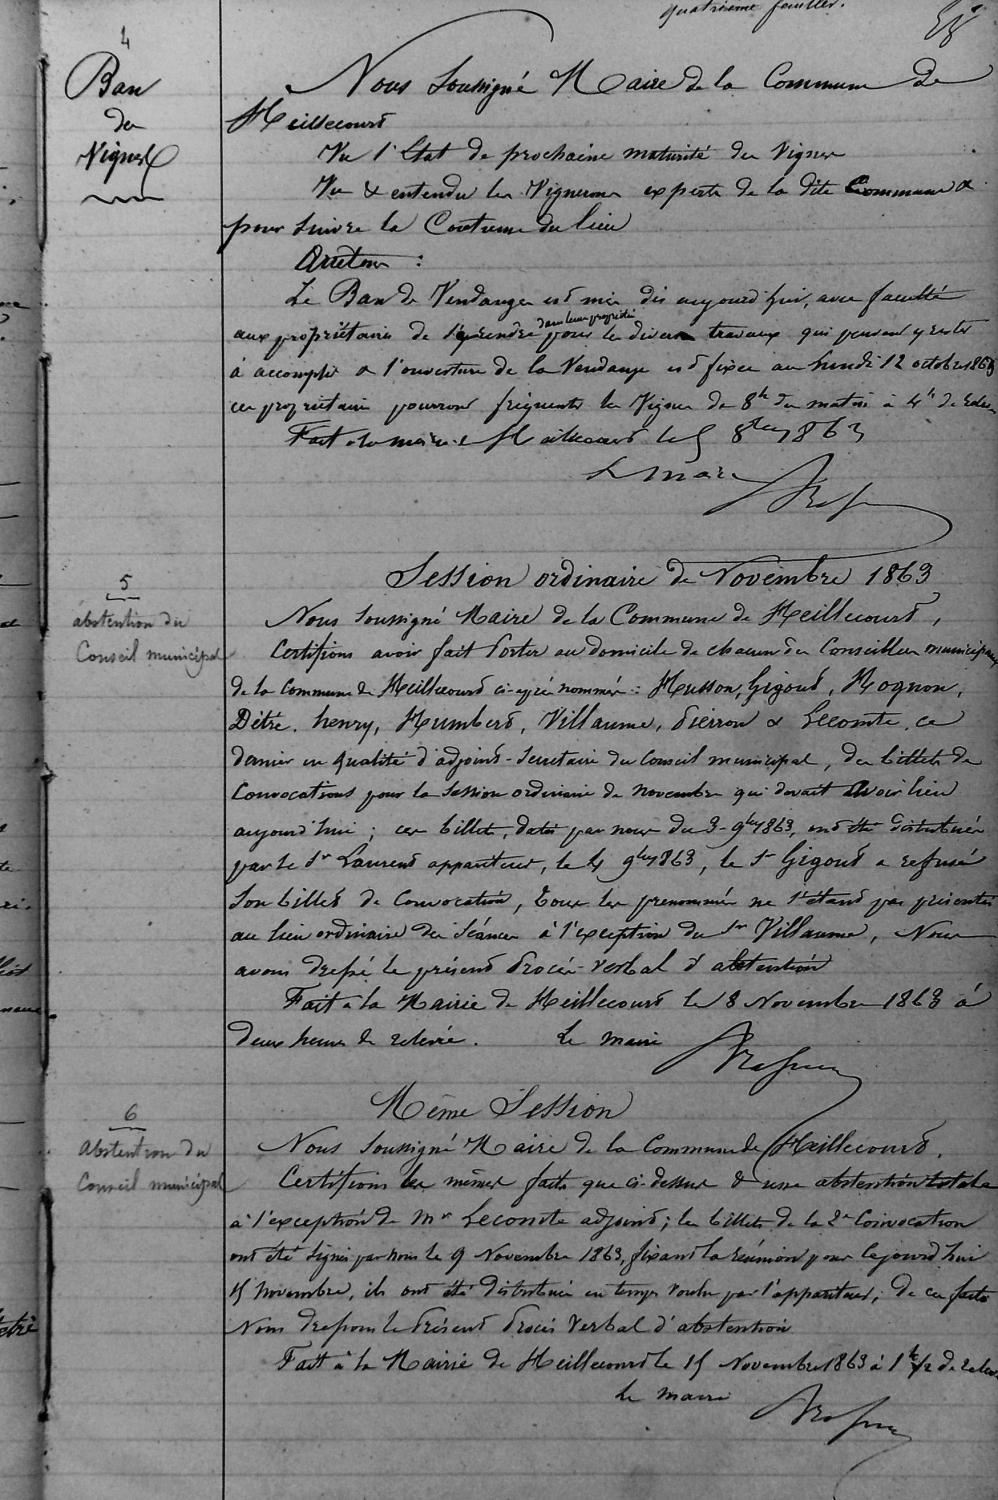 quatrième feuillet.
4
Ban
des
Vignes
Nous Soussigné Maire de la Commune de
Heillecourt
Vu l'Etat de prochaine maturité des Vignes
Vu & entendu les Vignerons experts de la dite Commune &
pour Suivre la Coutume du lieu
Arrêtons :
Le Ban de Vendanges est mis dès aujourd'hui, avec faculté
dans leurs propriétés
aux propriétaires de se rendre pour les divers travaux qui peuvent y rester
à accomplir & l'ouverture de la Vendange est fixée au Lundi 12 octobre 1863
ces propriétaires pourront fréquenter les Vignes de 8h du matin à 4h de relevée
Fait à la mairie Heillecourt le 5 8bre 1863
Le Maire
5
abstention du
Conseil municipal
Session ordinaire de Novembre 1863
Nous Soussigné Maire de la Commune de Heillecourt,
Certifions avoir fait Porter au domicile de chacun des Conseillers municipaux
de la Commune de Heillecourt ci-après nommés : Husson, Gigout, Hognon,
Détré, henry, Humbert, Villaume, Pierron & Lecomte, ce
dernier en qualité d'adjoint-Secrétaire du Conseil municipal, des billets de
Convocations pour la Session ordinaire de novembre qui devait Avoir lieu
aujourd'hui ; ces billets, datés par nous du 3 9bre 1863, ont été distribués
par le Sr Laurent appariteur, le 4 9bre 1863, le Sr Gigout a refusé
Son billet de Convocation, Tous les prénommés ne s'étant pas présentés
au lieu ordinaire des Séances à l'exception du Sr Villaume, Nous
avons dressé le présent Procès-verbal d'abstention
Fait à la Mairie de Heillecourt le 8 Novembre 1863 à
deux heures de relevée. Le maire
6
Abstention du
Conseil municipal
Même Session
Nous Soussigné Maire de la Commune de Heillecourt.
Certifions les mêmes faits que ci-dessus & une abstention totale
à l'exception de Mr Lecomte adjoint ; les billets de la 2e Convocation
ont été Signés par nous le 9 Novembre 1863, fixant la réunion pour cejourd'hui
15 Novembre, ils ont été distribués en temps voulu par l'appariteur ; de ces faits
Nous dressons le Présent Procès Verbal d'abstention
Fait à la Mairie de Heillecourt le 15 Novembre 1863 à 1h 1/2 de relevée
Le maire